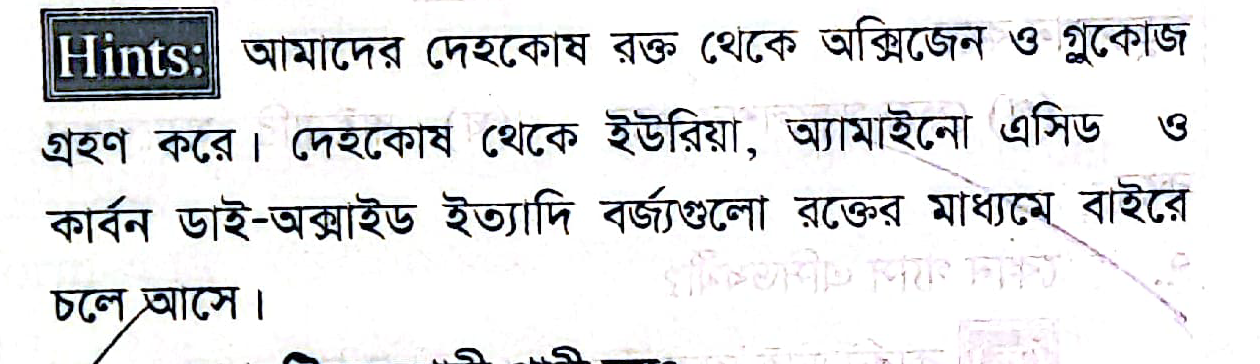 Hints: আমাদের দেহকোষ রক্ত থেকে অক্সিজেন ও গ্লুকোজ
গ্রহণ করে। দেহকোষ থেকে ইউরিয়া, অ্যামাইনো এসিড ও
কার্বন ডাই-অক্সাইড ইত্যাদি বর্জ্যগুলো রক্তের মাধ্যমে বাইরে
চলে আসে।